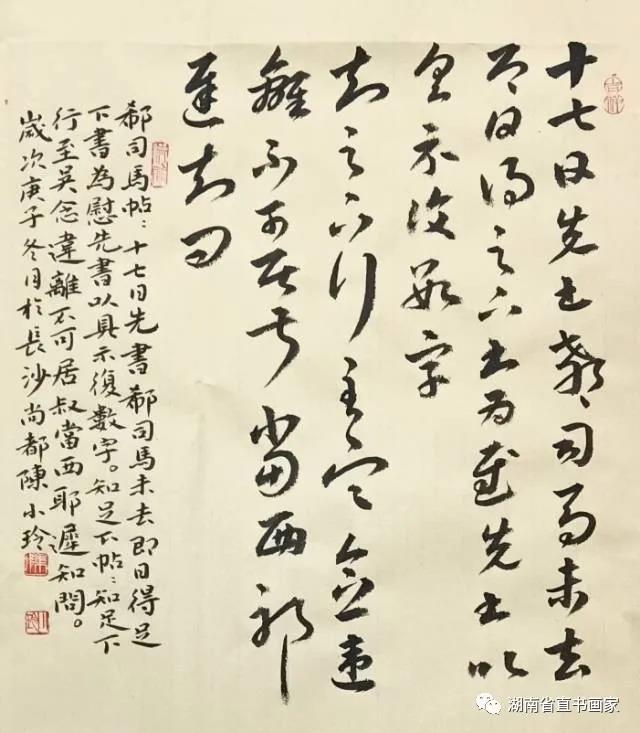 十七日先書郗司馬未去
即日得足下書為慰先書以
具示復數字
知足下行至吳念違
離不可居叔當西耶
遲知問
郗司馬帖：十七日先書郗司馬未去即日得足
下書為慰先書以具示復數字。知足下帖：知足下
行至吳念違離不可居叔當西耶遲知問。
歲次庚子冬月於長沙尚都陳小玲
湖南省直书画家